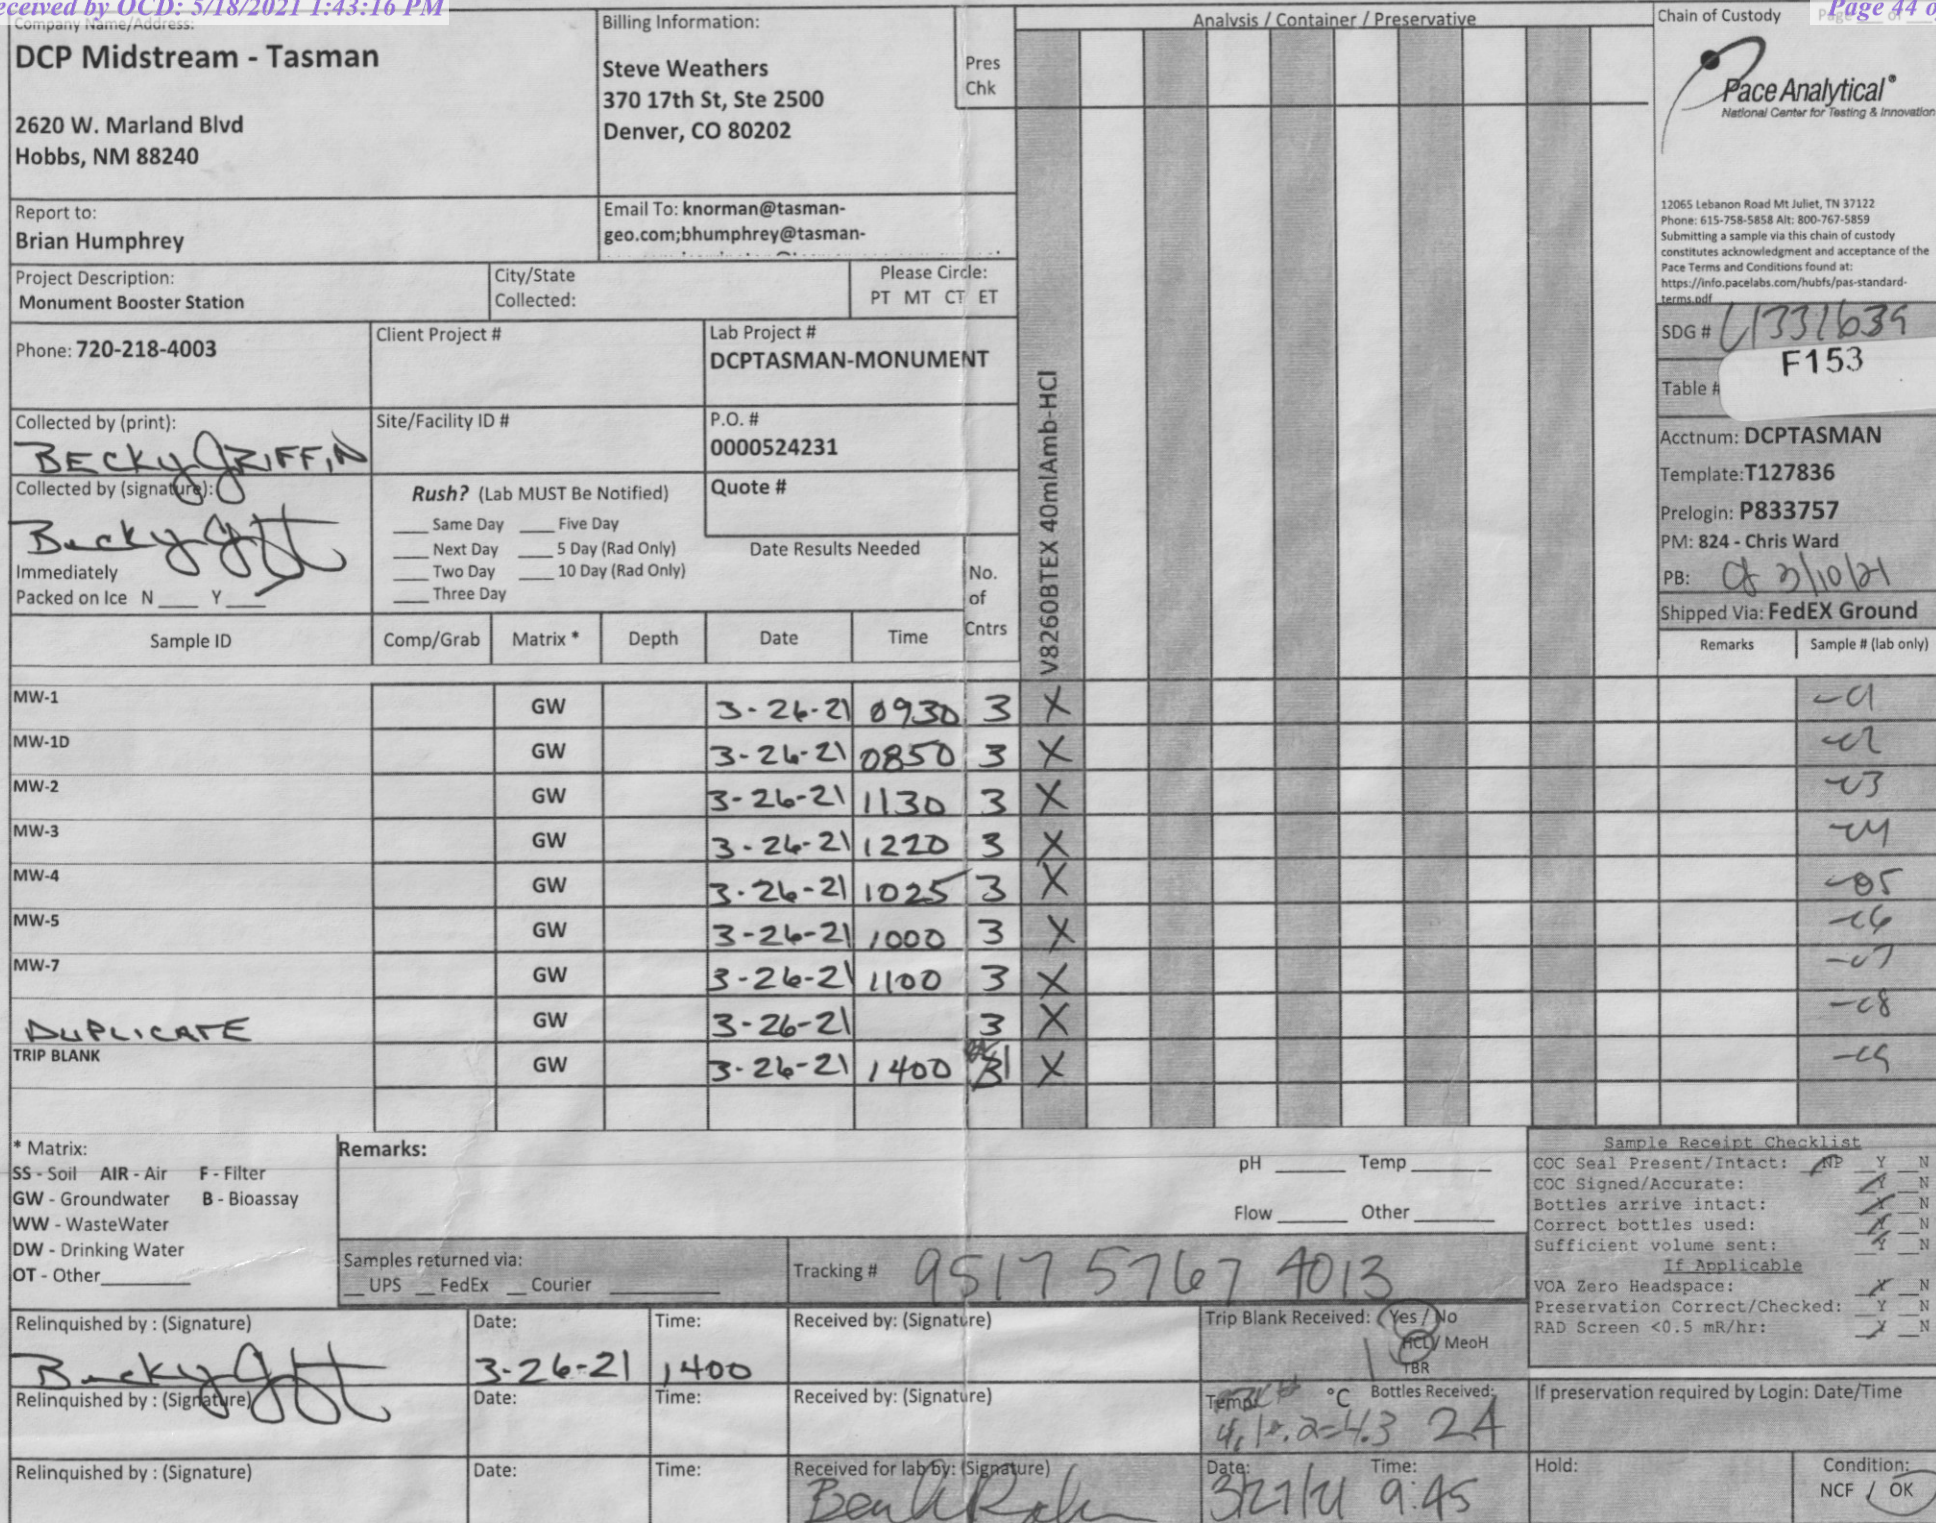 eceived by OCD: 5/18/2021 1:43:16 PM
Page 44 o
Company Name/Address:
DCP Midstream - Tasman
2620 W. Marland Blvd
Hobbs, NM 88240
Billing Information:
Steve Weathers
370 17th St, Ste 2500
Denver, CO 80202
Pres
Chk
Analysis / Container / Preservative
Chain of Custody
Pace Analytical®
National Center for Testing & Innovation
12065 Lebanon Road Mt Juliet, TN 37122
Phone: 615-758-5858 Alt: 800-767-5859
Submitting a sample via this chain of custody
constitutes acknowledgment and acceptance of the
Pace Terms and Conditions found at:
https://info.pacelabs.com/hubfs/pas-standard-
terms.pdf
Report to:
Brian Humphrey
Email To: knorman@tasman-
geo.com;bhumphrey@tasman-
Project Description:
Monument Booster Station
City/State
Collected:
Please Circle:
PT MT CT ET
Phone: 720-218-4003
Client Project #
Lab Project #
DCPTASMAN-MONUMENT
SDG # L1331639
F153
Table #
Collected by (print):
BECKY GRIFFIN
Site/Facility ID #
P.O. #
0000524231
Acctnum: DCPTASMAN
Template: T127836
Prelogin: P833757
PM: 824 - Chris Ward
PB: 3/10/21
Shipped Via: FedEX Ground
Collected by (signature):
Becky
Rush? (Lab MUST Be Notified)
___ Same Day ___ Five Day
___ Next Day ___ 5 Day (Rad Only)
___ Two Day ___ 10 Day (Rad Only)
___ Three Day
Quote #
Date Results Needed
Immediately
Packed on Ice N ___ Y ___
No.
of
Cntrs
V8260BTEX 40mlAmb-HCl
Sample ID Comp/Grab Matrix * Depth Date Time Remarks Sample # (lab only)
MW-1 GW 3-26-21 0930 3 X -01
MW-1D GW 3-26-21 0850 3 X -02
MW-2 GW 3-26-21 1130 3 X -03
MW-3 GW 3-26-21 1220 3 X -04
MW-4 GW 3-26-21 1025 3 X -05
MW-5 GW 3-26-21 1000 3 X -06
MW-7 GW 3-26-21 1100 3 X -07
DUPLICATE GW 3-26-21 3 X -08
TRIP BLANK GW 3-26-21 1400 1 X -09
* Matrix:
SS - Soil AIR - Air F - Filter
GW - Groundwater B - Bioassay
WW - WasteWater
DW - Drinking Water
OT - Other
Remarks:
pH ______ Temp ______
Flow ______ Other ______
Samples returned via:
__ UPS __ FedEx __ Courier
Tracking # 9517 5767 4013
Sample Receipt Checklist
COC Seal Present/Intact: NP Y N
COC Signed/Accurate: Y N
Bottles arrive intact: Y N
Correct bottles used: Y N
Sufficient volume sent: Y N
If Applicable
VOA Zero Headspace: Y N
Preservation Correct/Checked: Y N
RAD Screen <0.5 mR/hr: Y N
Relinquished by : (Signature)
Becky
Date:
3-26-21
Time:
1400
Received by: (Signature)
Trip Blank Received: Yes / No
1 HCL / MeoH
TBR
Relinquished by : (Signature)
Date:
Time:
Received by: (Signature)
Temp: °C Bottles Received:
4.1+.2=4.3 24
If preservation required by Login: Date/Time
Relinquished by : (Signature)
Date:
Time:
Received for lab by: (Signature)
Date: Time:
3/27/21 9:45
Hold:
Condition:
NCF / OK